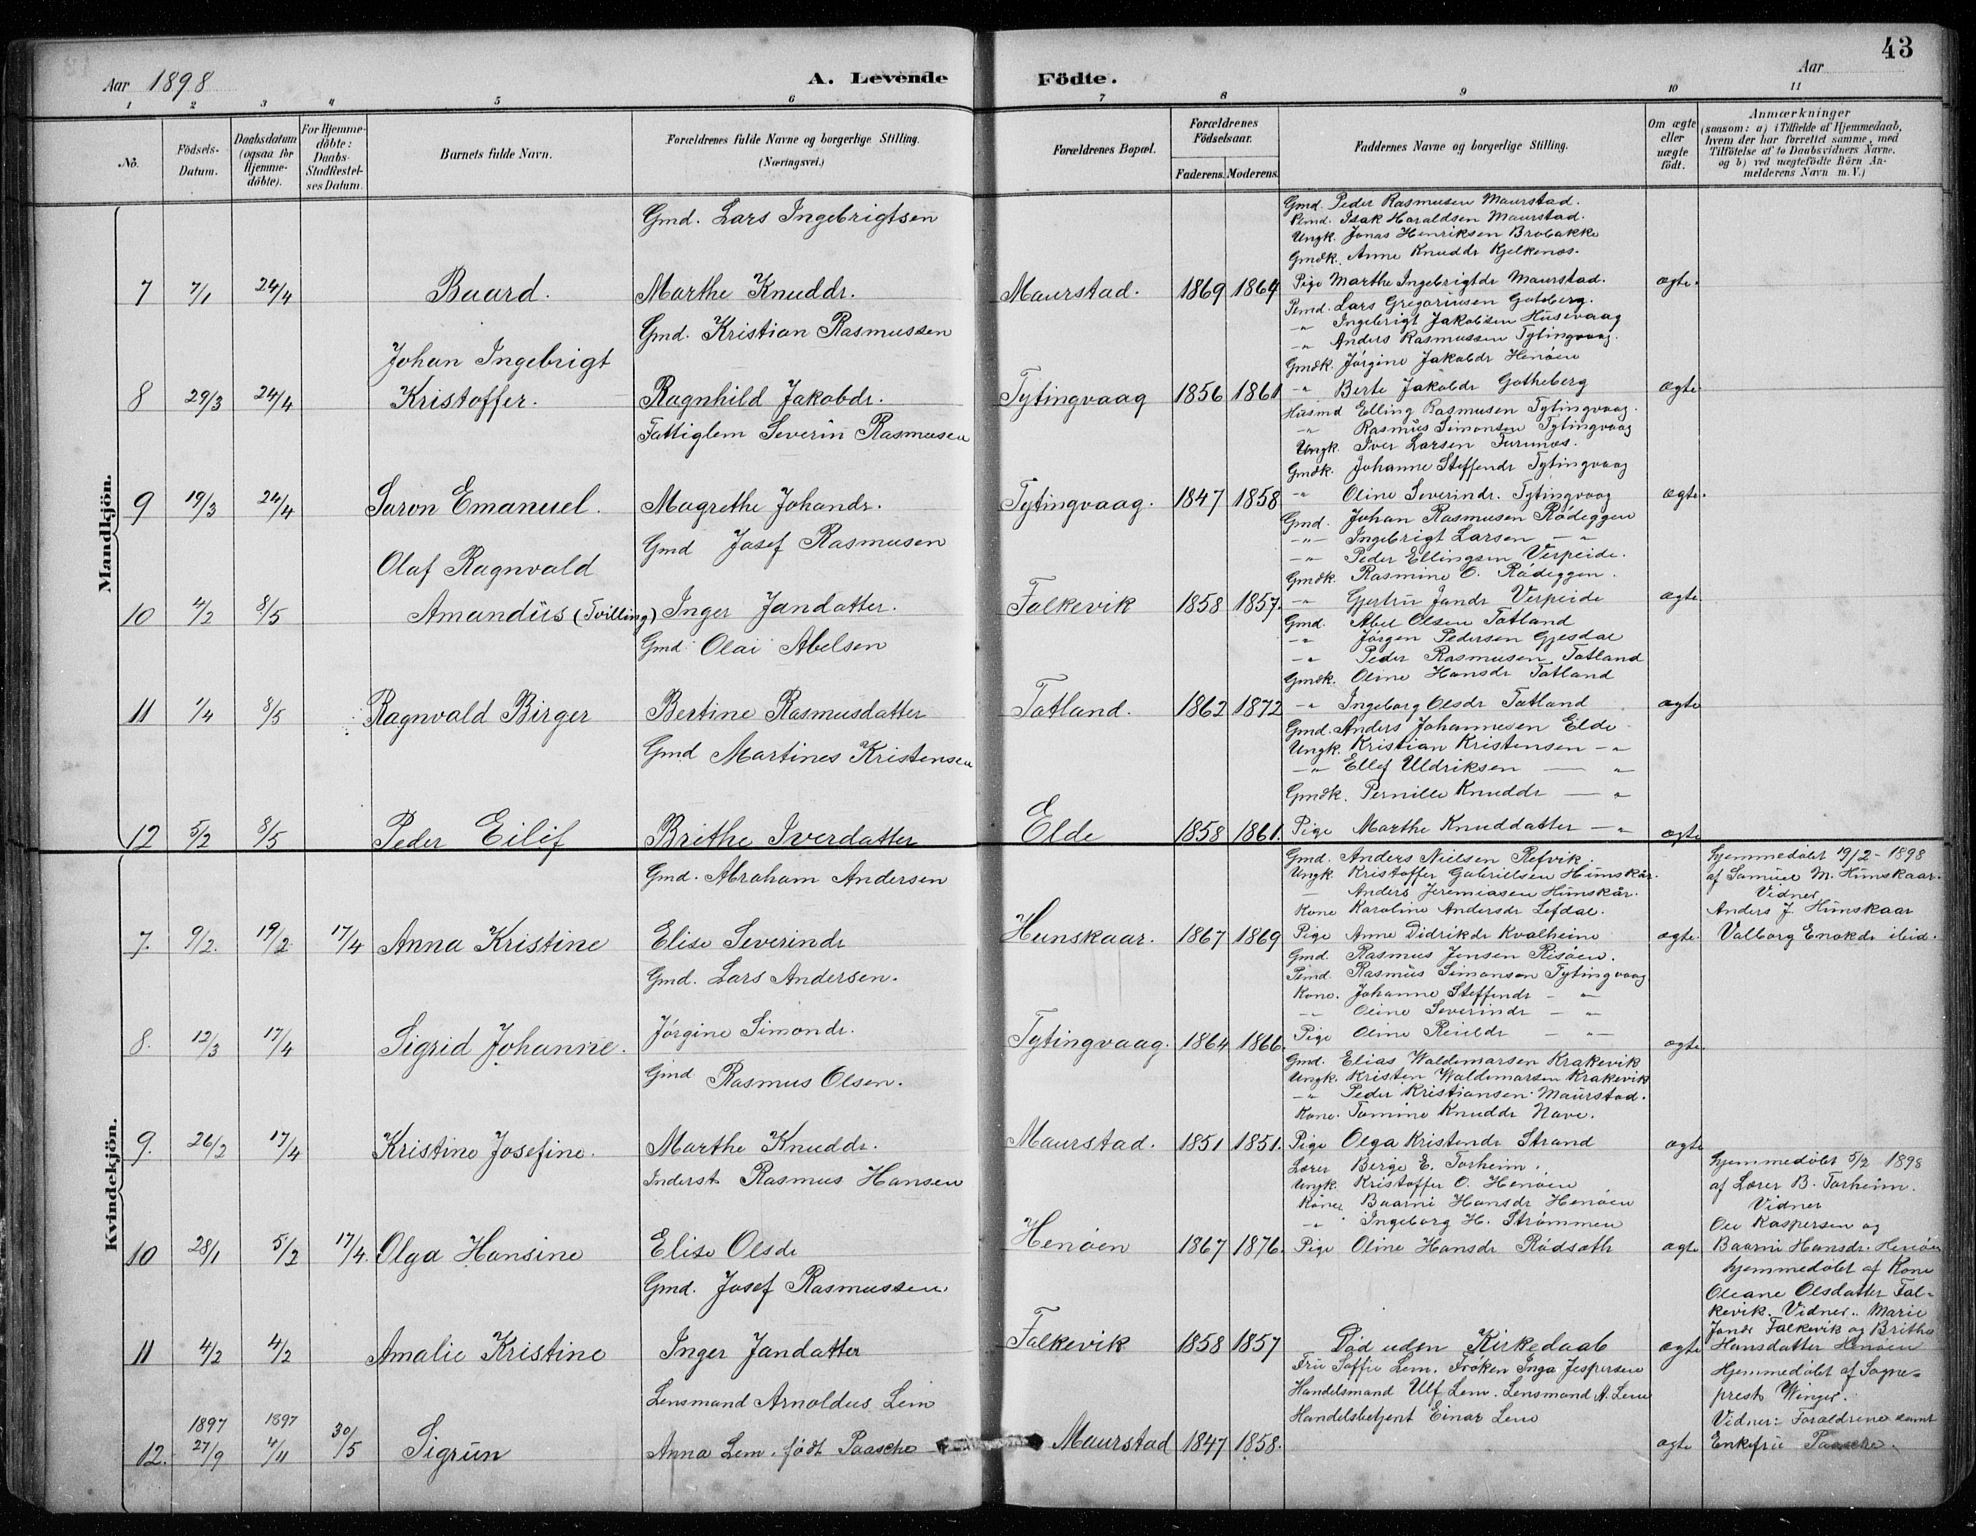 43
Aar 1898
A. Levende Födte.
Aar
1 2 3 4 5 6 7 8 9 10 11
No.
Födsels-Datum.
Daabsdatum (ogsaa for Hjemme-döbte).
For Hjemme-döbte: Daabs-Stadfæstel-ses Datum.
Barnets fulde Navn.
Forældrenes fulde Navne og borgerlige Stilling. (Næringsvei.)
Forældrenes Bopæl.
Forældrenes Födselsaar.
Faderens. Moderens.
Faddernes Navne og borgerlige Stilling.
Om ægte eller uægte födt.
Anmærkninger
(saasom: a) i Tilfælde af Hjemmedaab, hvem der har forrettet samme, med Tilföielse af to Daabsvidners Navne, og b) ved uægtefödte Börn An-melderens Navn m. V.)
Mandkjön.
Gmd. Lars Ingebrigtsen
Gmd. Peder Rasmusen Maurstad.
Pemd. Isak Haraldsen Maurstad.
Ungk. Jonas Henriksen Brobakke
Gmdk. Anne Knuddr Kjelkenæs.
7 7/1 24/4 Baard. Marthe Knuddr. Maurstad. 1869 1864 Pige Marthe Ingebrigtdr Maurstad. ægte.
Gmd. Kristian Rasmussen
Pemd. Lars Gregoriusen Goteberg.
-"- Ingebrigt Jakobsen Husevaag
-"- Anders Rasmussen Tytingvaag.
Gmdk. Jörgine Jakobdr Henöen
Johan Ingebrigt
8 29/3 24/4 Kristoffer. Ragnhild Jakobdr. Tytingvaag 1856 1861 -"- Berte Jakobdr Gotheberg ægte
Fattiglem Severin Rasmusen
Husmd Elling Rasmusen Tytingvaag.
-"- Rasmus Simonsen Tytingvaag
Ungk. Iver Larsen Furunæs.
Gmdk. Johanne Steffendr Tytingvaag
9 19/3 24/4 Saron Emanuel. Magrethe Johandr. Tytingvaag. 1847 1858 -"- Oline Severindr. Tytingvaag ægte.
Gmd Josef Rasmusen
Gmd. Johan Rasmusen Rödeggen
-"- Ingebrigt Larsen -"-
-"- Peder Ellingsen Verpeide.
Gmdk. Rasmine O. Rödeggen.
Olaf Ragnvald
10 4/2 8/5 Amandus (Tvilling) Inger Jandatter. Falkevik 1858 1857. -"- Gjertru Jandr Verpeide ægte
Gmd. Olai Abelsen
Gmd. Abel Olsen Totland
-"- Jörgen Pedersen Gjesdal
-"- Peder Rasmusen Totland
Gmdk. Oline Hansdr Totland
11 1/4 8/5 Ragnvald Birger Bertine Rasmusdatter Totland. 1862 1872 -"- Ingeborg Olsdr Totland ægte
Gmd Martines Kristensen
Gmd. Anders Johannesen Elde
Ungk. Kristian Kristensen -"-
-"- Ellef Uldriksen -"-
Gmdk. Pernille Knuddr -"-
12 5/2 8/5 Peder Eilif Brithe Iverdatter Elde 1858 1861. Pige Marthe Knuddatter -"- ægte
Kvindekjön.
Gmd. Abraham Andersen
Gmd. Anders Nielsen Refvik.
Ungk. Kristoffer Gabrielsen Humskår.
-"- Anders Jeremiasen Humskår.
Kone Karoline Andersdr Lefdal.
Hjemmedöbt 19/2-1898
af Samuel M. Humskaar.
Vidner
Anders J. Humskaar
7. 9/2. 19/2. 17/4 Anna Kristine Elise Severindr Hunskaar. 1867 1869 Pige Anne Didrikdr Kvalheim ægte. Valborg Enokdr ibid.
Gmd. Lars Andersen.
Gmd. Rasmus Jensen Risöen.
Pemd. Rasmus Simonsen Tytingvaag
Kone. Johanne Steffendr -"-
-"- Oline Severindr -"-
8. 12/3 17/4 Sigrid Johanne. Jörgine Simondr. Tytingvaag. 1864 1866. Pige Oline -"- ægte.
Gmd Rasmus Olsen.
Gmd. Elias Waldemarsen Krakevik
Ungk. Kristen Waldemarsen Krakevik
-"- Peder Kristiansen Maurstad.
Kone. Tomine Knuddr Nave.
9. 26/2 17/4 Kristine Josefine. Marthe Knuddr. Maurstad. 1851 1851. Pige Olga Kristendr Strand ægte
Inderst Rasmus Hansen
Lærer Berge E. Torheim.
Ungk. Kristoffer O. Henöen
Koner Baarni Hansdr Henöen
-"- Ingeborg H. Strömmen
Hjemmedöbt 5/2 1898
af Lærer B. Torheim.
Vidner
Ole Kaspersen og
10 28/1 5/2 17/4. Olga Hansine Elise Olsdr Henöen 1867 1876. Pige Oline Hansdr Rödsæth ægte Baarni Hansdr. Henöen
Gmd. Josef Rasmussen.
Hjemmedöbt af Kone
Oleane Olsdatter Fal-
kevik. Vidner: Marie
Jandr Falkevik og Brithe
11 4/2 4/2 Amalie Kristine Inger Jandatter Falkevik 1858 1857 Död uden Kirkedaab ægte Hansdatter Henöen
Lensmand Arnoldus Lem
Fru Soffie Lem. Fröken Inga Jespersen
Handelsmand Ulf Lem. Lensmand A. Lem
Handelsbetjent Einar Lem
Hjemmedöbt af Sogne-
prest Winger.
Vidner: Forældrene samt
12. 1897 27/9 1897 4/11 30/5 Sigrun Anna Lem. födt Paasche Maurstad 1847 1858. ægte Enkefru Paasche.